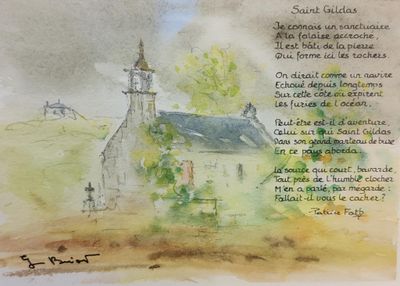 Saint Gildas
Je connais un sanctuaire
A la falaise accroché,
Il est bâti de la pierre
Qui forme ici les rochers.
On dirait comme un navire
Echoué depuis longtemps
Sur cette côte où expirent
Les furies de l'océan.
Peut-être est-il d'aventure,
Celui sur qui Saint Gildas
Dans son grand manteau de bure
En ce pays aborda.
La source qui court, bavarde,
Tout près de l'humble clocher
M'en a parlé, par mégarde :
Fallait-il vous le cacher ?
Patrice